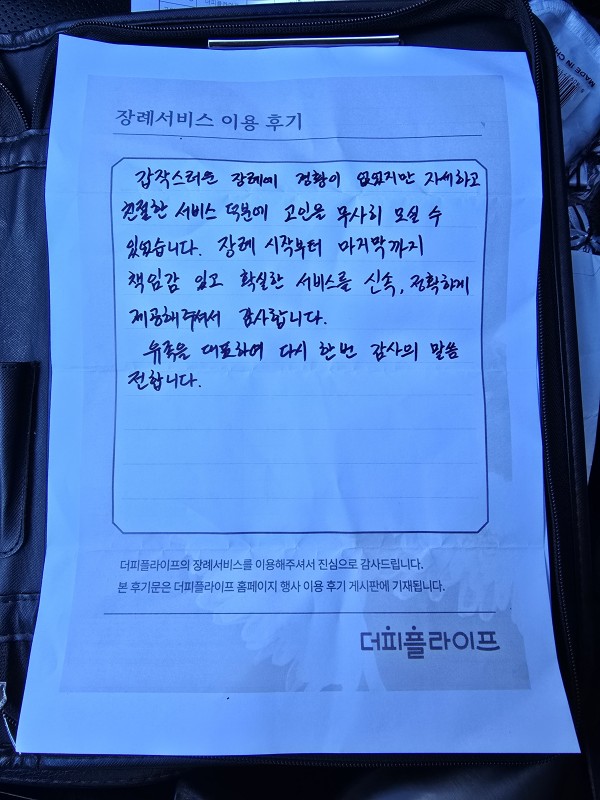 MADE IN CHI
장례서비스 이용 후기
갑작스러운 장례에 경황이 없었지만 자세하고
친절한 서비스 덕분에 고인을 무사히 모실 수
있었습니다. 장례 시작부터 마지막까지
책임감 있고 확실한 서비스를 신속, 정확하게
제공해주셔서 감사합니다.
유족을 대표하여 다시 한번 감사의 말씀
전합니다.
더피플라이프의 장례서비스를 이용해주셔서 진심으로 감사드립니다.
본 후기문은 더피플라이프 홈페이지 행사 이용 후기 게시판에 기재됩니다.
더피플라이프